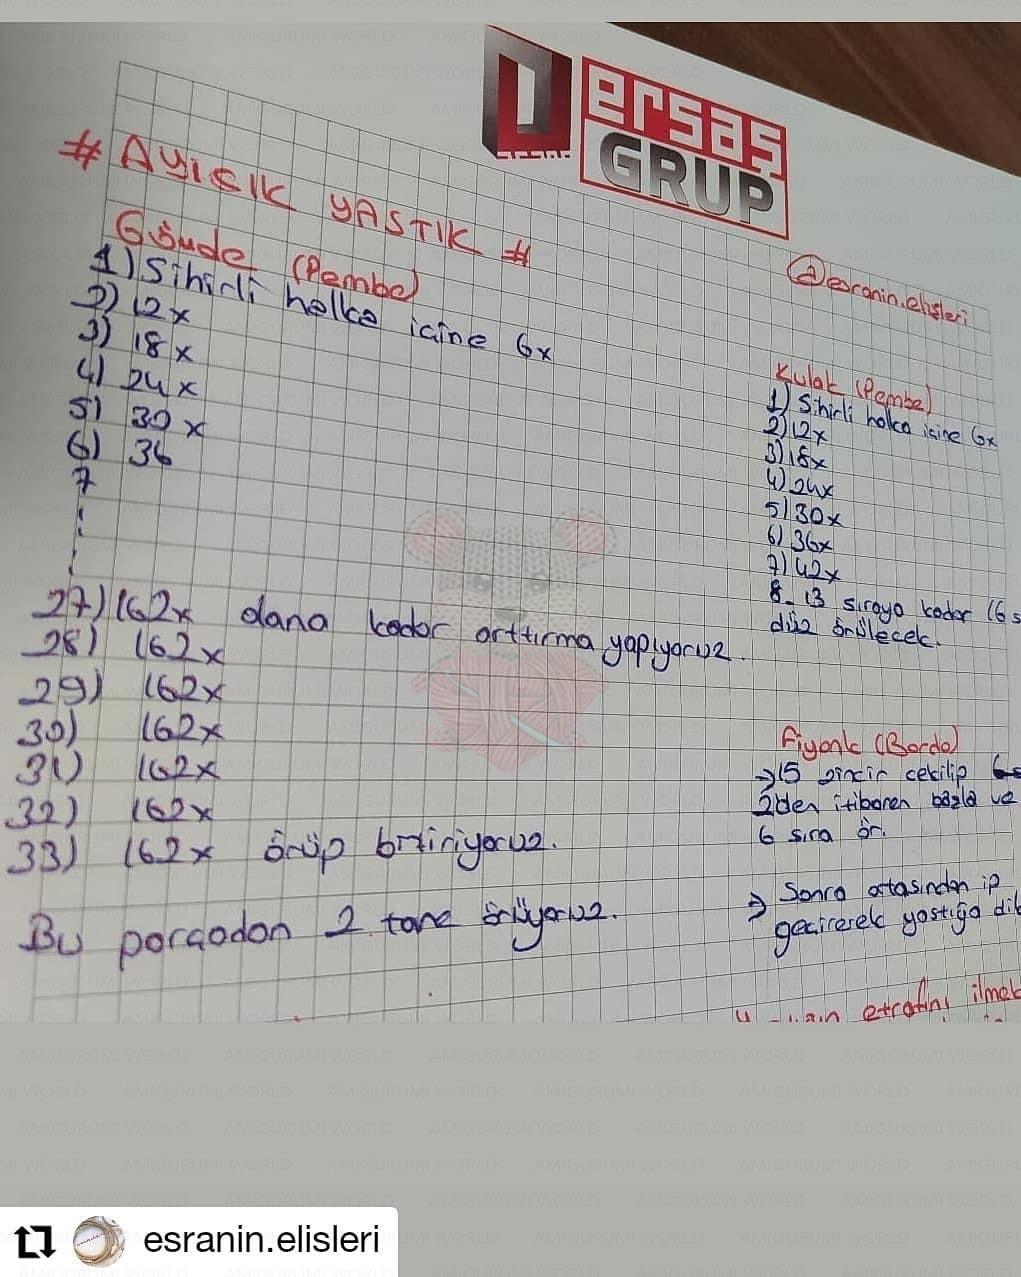 ersaş
GRUP
# AYICIK YASTIK #
@esranin.elişleri
Gövde (Pembe)
1) Sihirli halka içine 6x
2) 12x
3) 18x
4) 24x
5) 30x
6) 36
7
27) 162x olana kadar arttırma yapıyoruz.
28) 162x
29) 162x
30) 162x
31) 162x
32) 162x
33) 162x örüp bitiriyoruz.
Bu parçadan 2 tane örüyoruz.
Kulak (Pembe)
1) Sihirli halka içine 6x
2) 12x
3) 18x
4) 24x
5) 30x
6) 36x
7) 42x
8-13 sıraya kadar (6 s
düz örülecek.
Fiyonk (Bordo)
→ 15 zincir çekilip
2'den itibaren başla ve
6 sıra ör.
→ Sonra ortasından ip
geçirerek yastığa dik
etrafını ilmek
AMIGURUMI WORLD
esranin.elisleri